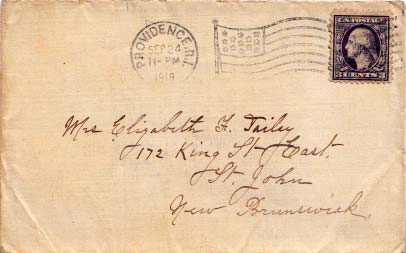 PROVIDENCE, R.I.
SEP 24
11-PM
1918
U.S. POSTAGE
3 CENTS 3
Mrs Elizabeth F. Tailey
172 King St East.
St. John
New Brunswick.